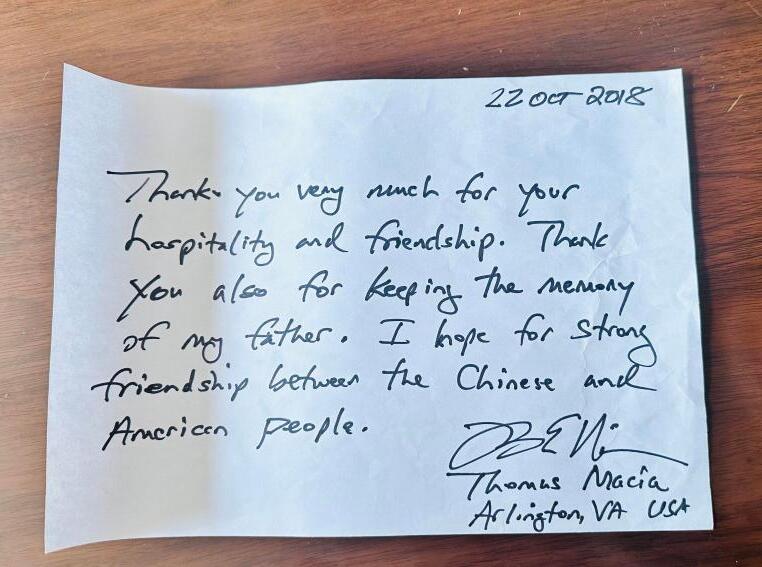 22 OCT 2018
Thank you very much for your
hospitality and friendship. Thank
you also for keeping the memory
of my father. I hope for strong
friendship between the Chinese and
American people.
Thomas Macia
Arlington, VA USA